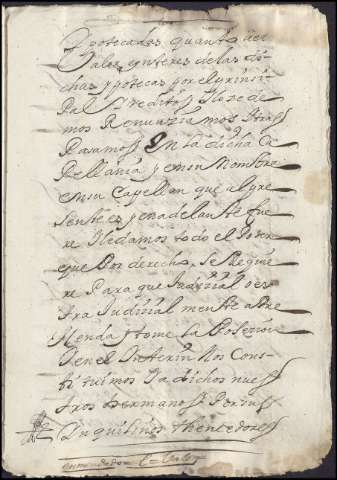 Ypotecados quanto del
Valor ynteres de las di
chas ypotecas por el prinsi
pal creditos Y lo sede
mos Renunziamos Y tras
pasamos En la dicha Ca
pellania y en su Nombre a
en su capellan que al pre
sente es y en adelante fue
re Y le damos todo el Poder
que Por derecho se Requie
re Para que Judizial o es
tra Judizial mente apre
henda y tome la Posesion
Y en el Ynterin Nos Cons
ti tuimos Y a dichos nues
tros hermanos Por sus
Ynquilinos thenedores
enmendado